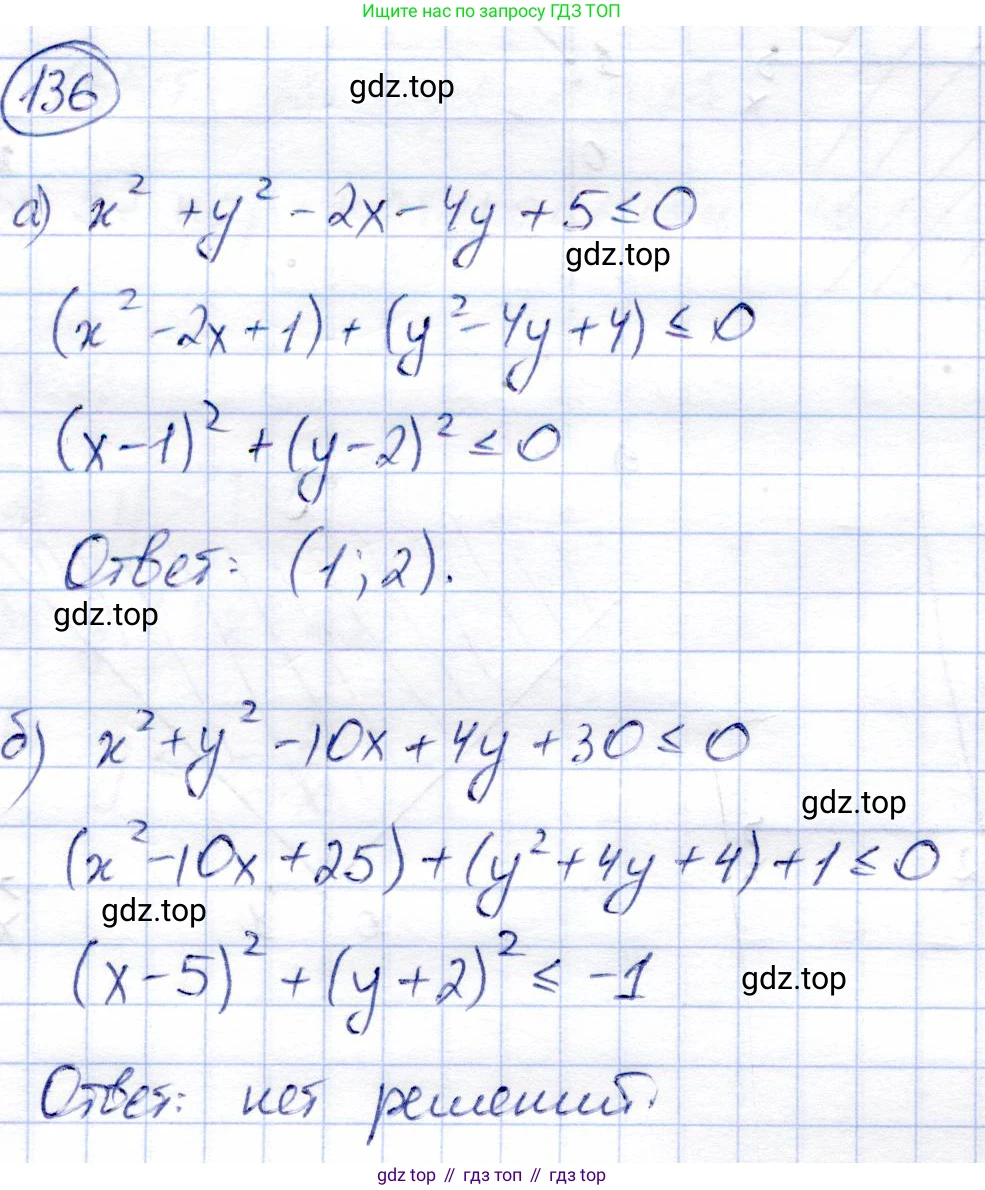 Ищите нас по запросу ГДЗ ТОП
136
gdz.top
а) x² + y² - 2x - 4y + 5 ≤ 0
gdz.top
(x² - 2x + 1) + (y² - 4y + 4) ≤ 0
(x - 1)² + (y - 2)² ≤ 0
Ответ: (1; 2).
gdz.top
б) x² + y² - 10x + 4y + 30 ≤ 0
gdz.top
(x² - 10x + 25) + (y² + 4y + 4) + 1 ≤ 0
gdz.top
(x - 5)² + (y + 2)² ≤ -1
gdz.top
Ответ: нет решений.
gdz top // гдз топ // гдз top